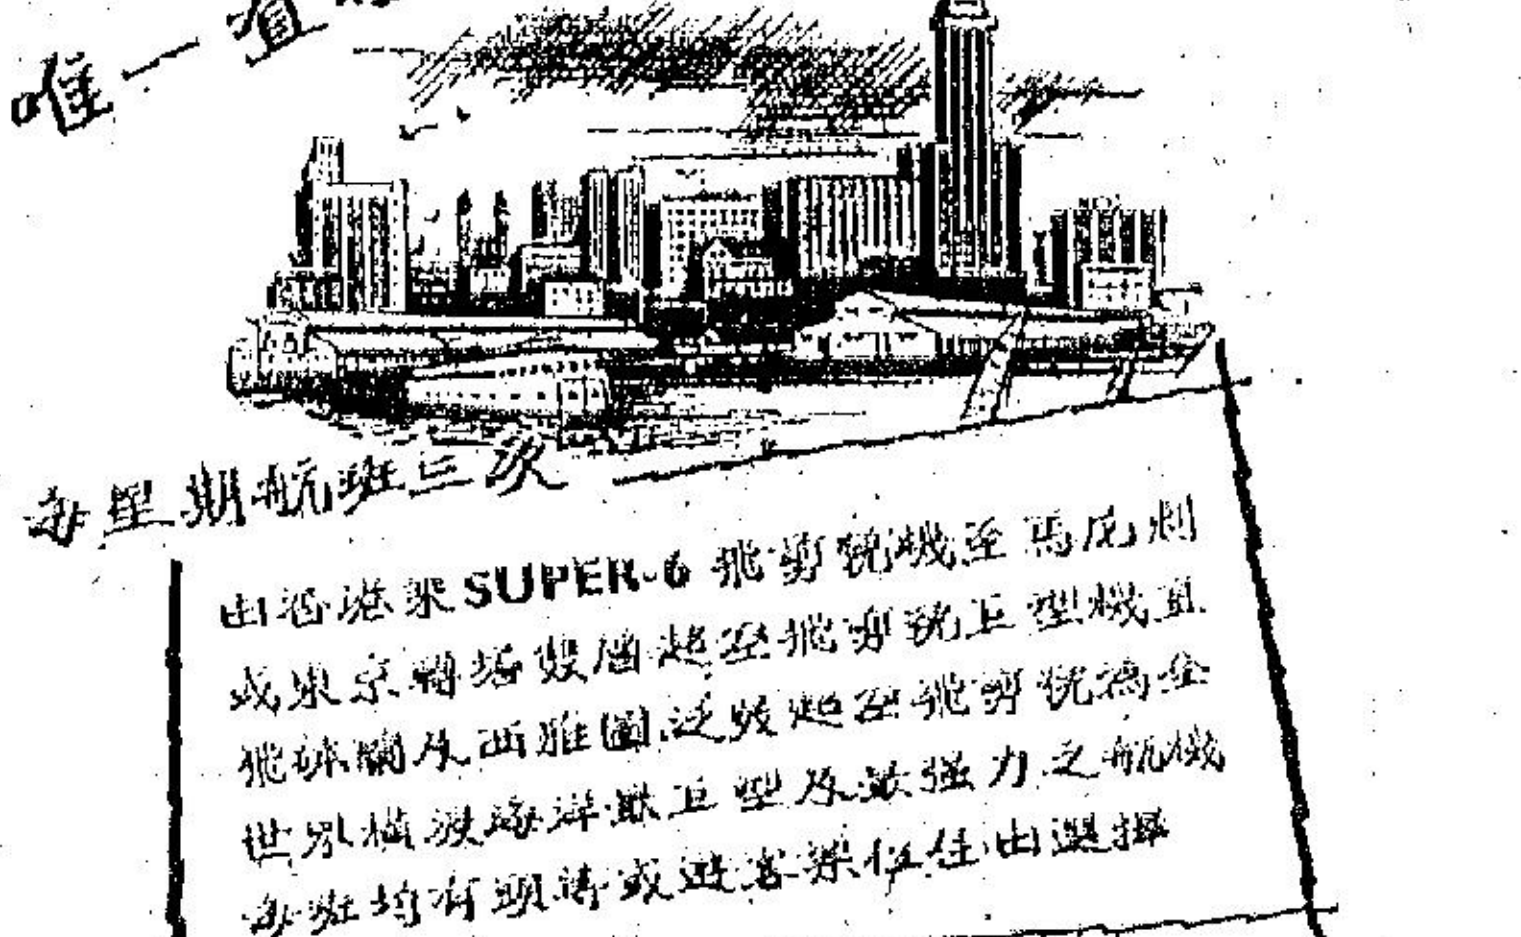 唯一直
每星期航班三次
由香港乘SUPER-6 飛剪號機至馬尼剌
或東京轉搭雙層超至飛剪號巨型機直
飛砵崙及西雅圖.泛美超至飛剪號為全
世界橫渡海洋最巨型及最强力之航機
每班均有頭等或遊客梁位任由選擇